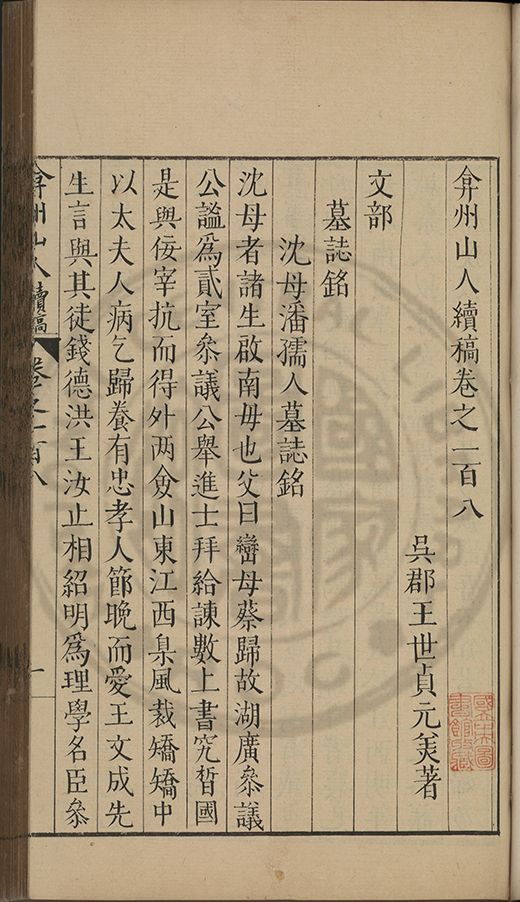 弇州山人續稿卷之一百八
吳郡王世貞元美著
文部
墓誌銘
沈母潘孺人墓誌銘
沈母者諸生啟南毋也父曰巒母蔡歸故湖廣叅議
公謐爲貳室叅議公舉進士拜給諫數上書究晢國
是與佞宰抗而得外两僉山東江西臬風裁矯矯中
以太夫人病乞歸養有忠孝人節晚而愛王文成先
生言與其徒錢德洪王汝止相紹明爲理學名臣叅
弇州山人續稿 卷之一百八 一
國家圖書館藏